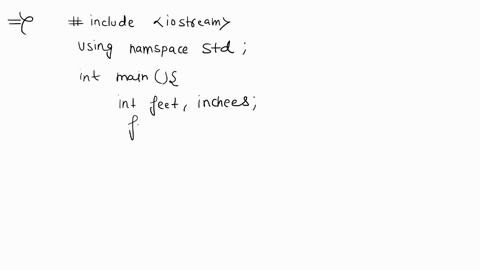 # include <iostream>
using namspace std;
int main(){
int feet, inchees;
f